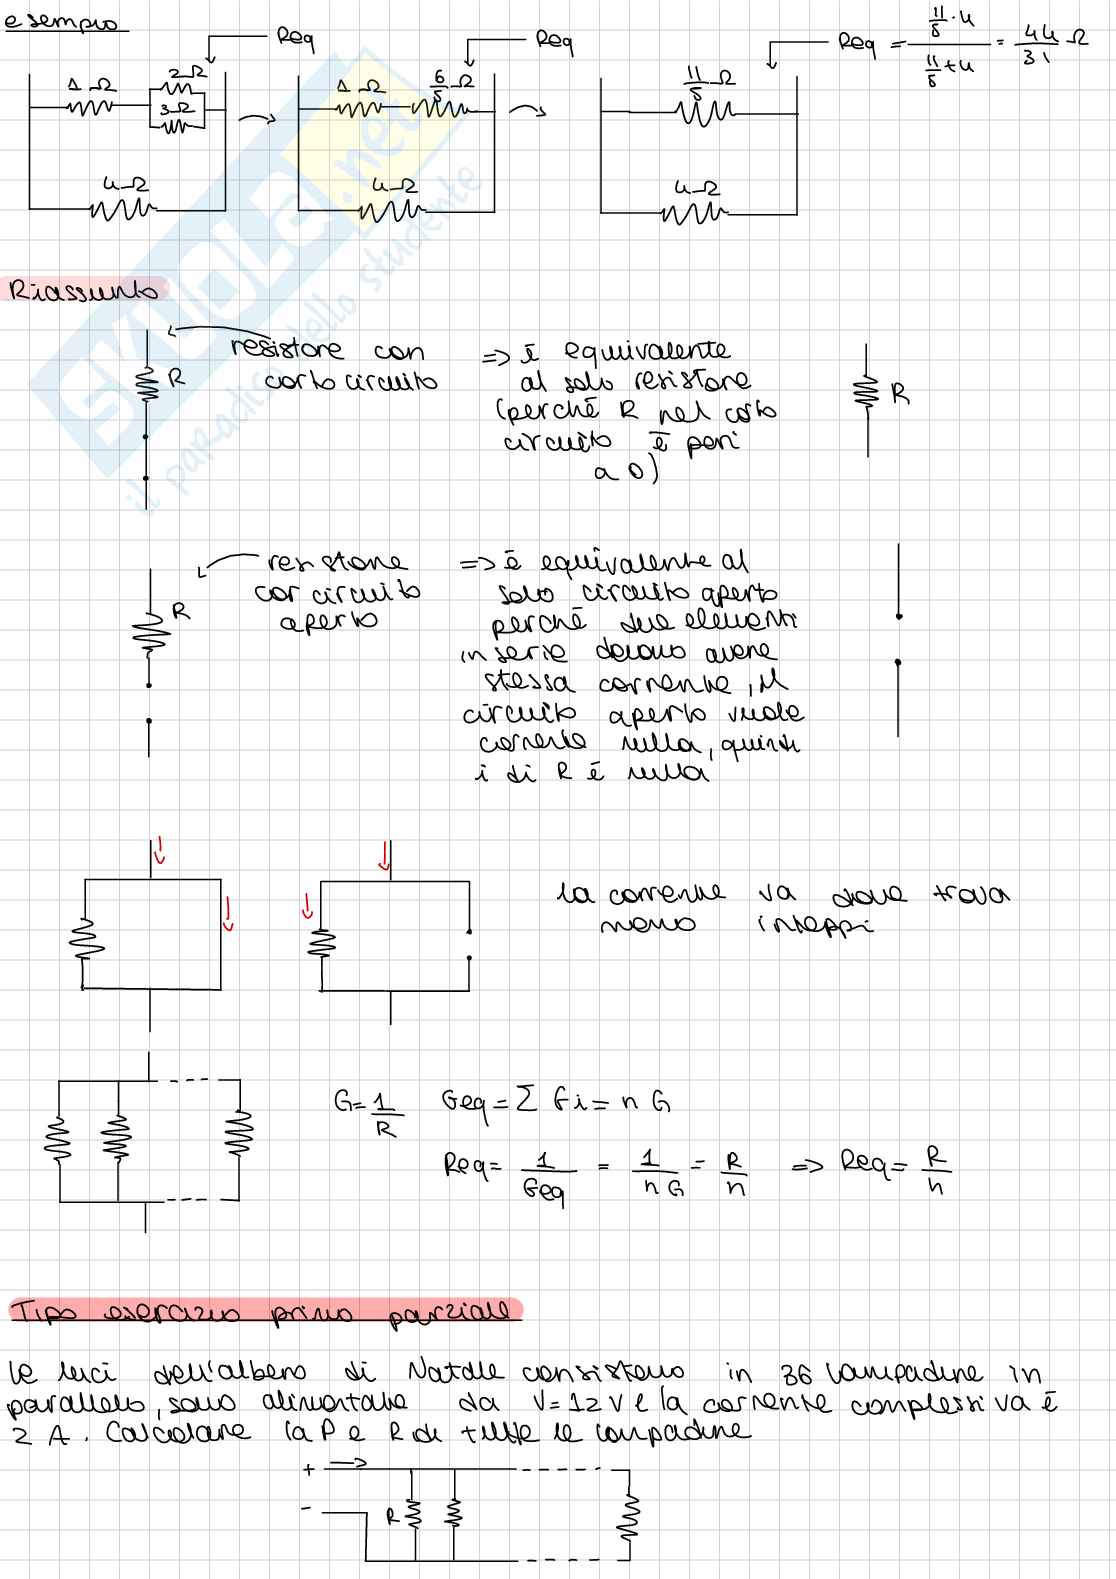 esempio
Req
1 Ω
2Ω
3Ω
4Ω
Req
1 Ω
6/5 Ω
4Ω
Req = (11/5 · 4)/(11/5 + 4) = 44/31 Ω
11/5 Ω
4Ω
Riassunto
R
resistore con
corto circuito
=> è equivalente
al solo resistore
(perché R nel corto
circuito è pari
a 0)
R
R
resistore
con circuito
aperto
=> è equivalente al
solo circuito aperto
perché due elementi
in serie devono avere
stessa corrente, il
circuito aperto vuole
corrente nulla, quindi
i di R è nulla
la corrente va dove trova
meno intoppi
G = 1/R Geq = Σ Gi = n G
Req = 1/Geq = 1/nG = R/n => Req = R/n
Tipo esercizio primo parziale
le luci dell'albero di Natale consistono in 36 lampadine in
parallelo, sono alimentate da V=12 V e la corrente complessiva è
2 A. Calcolare la P e R di tutte le lampadine
+
-
R
SKUOLA.net
il paradiso dello studente